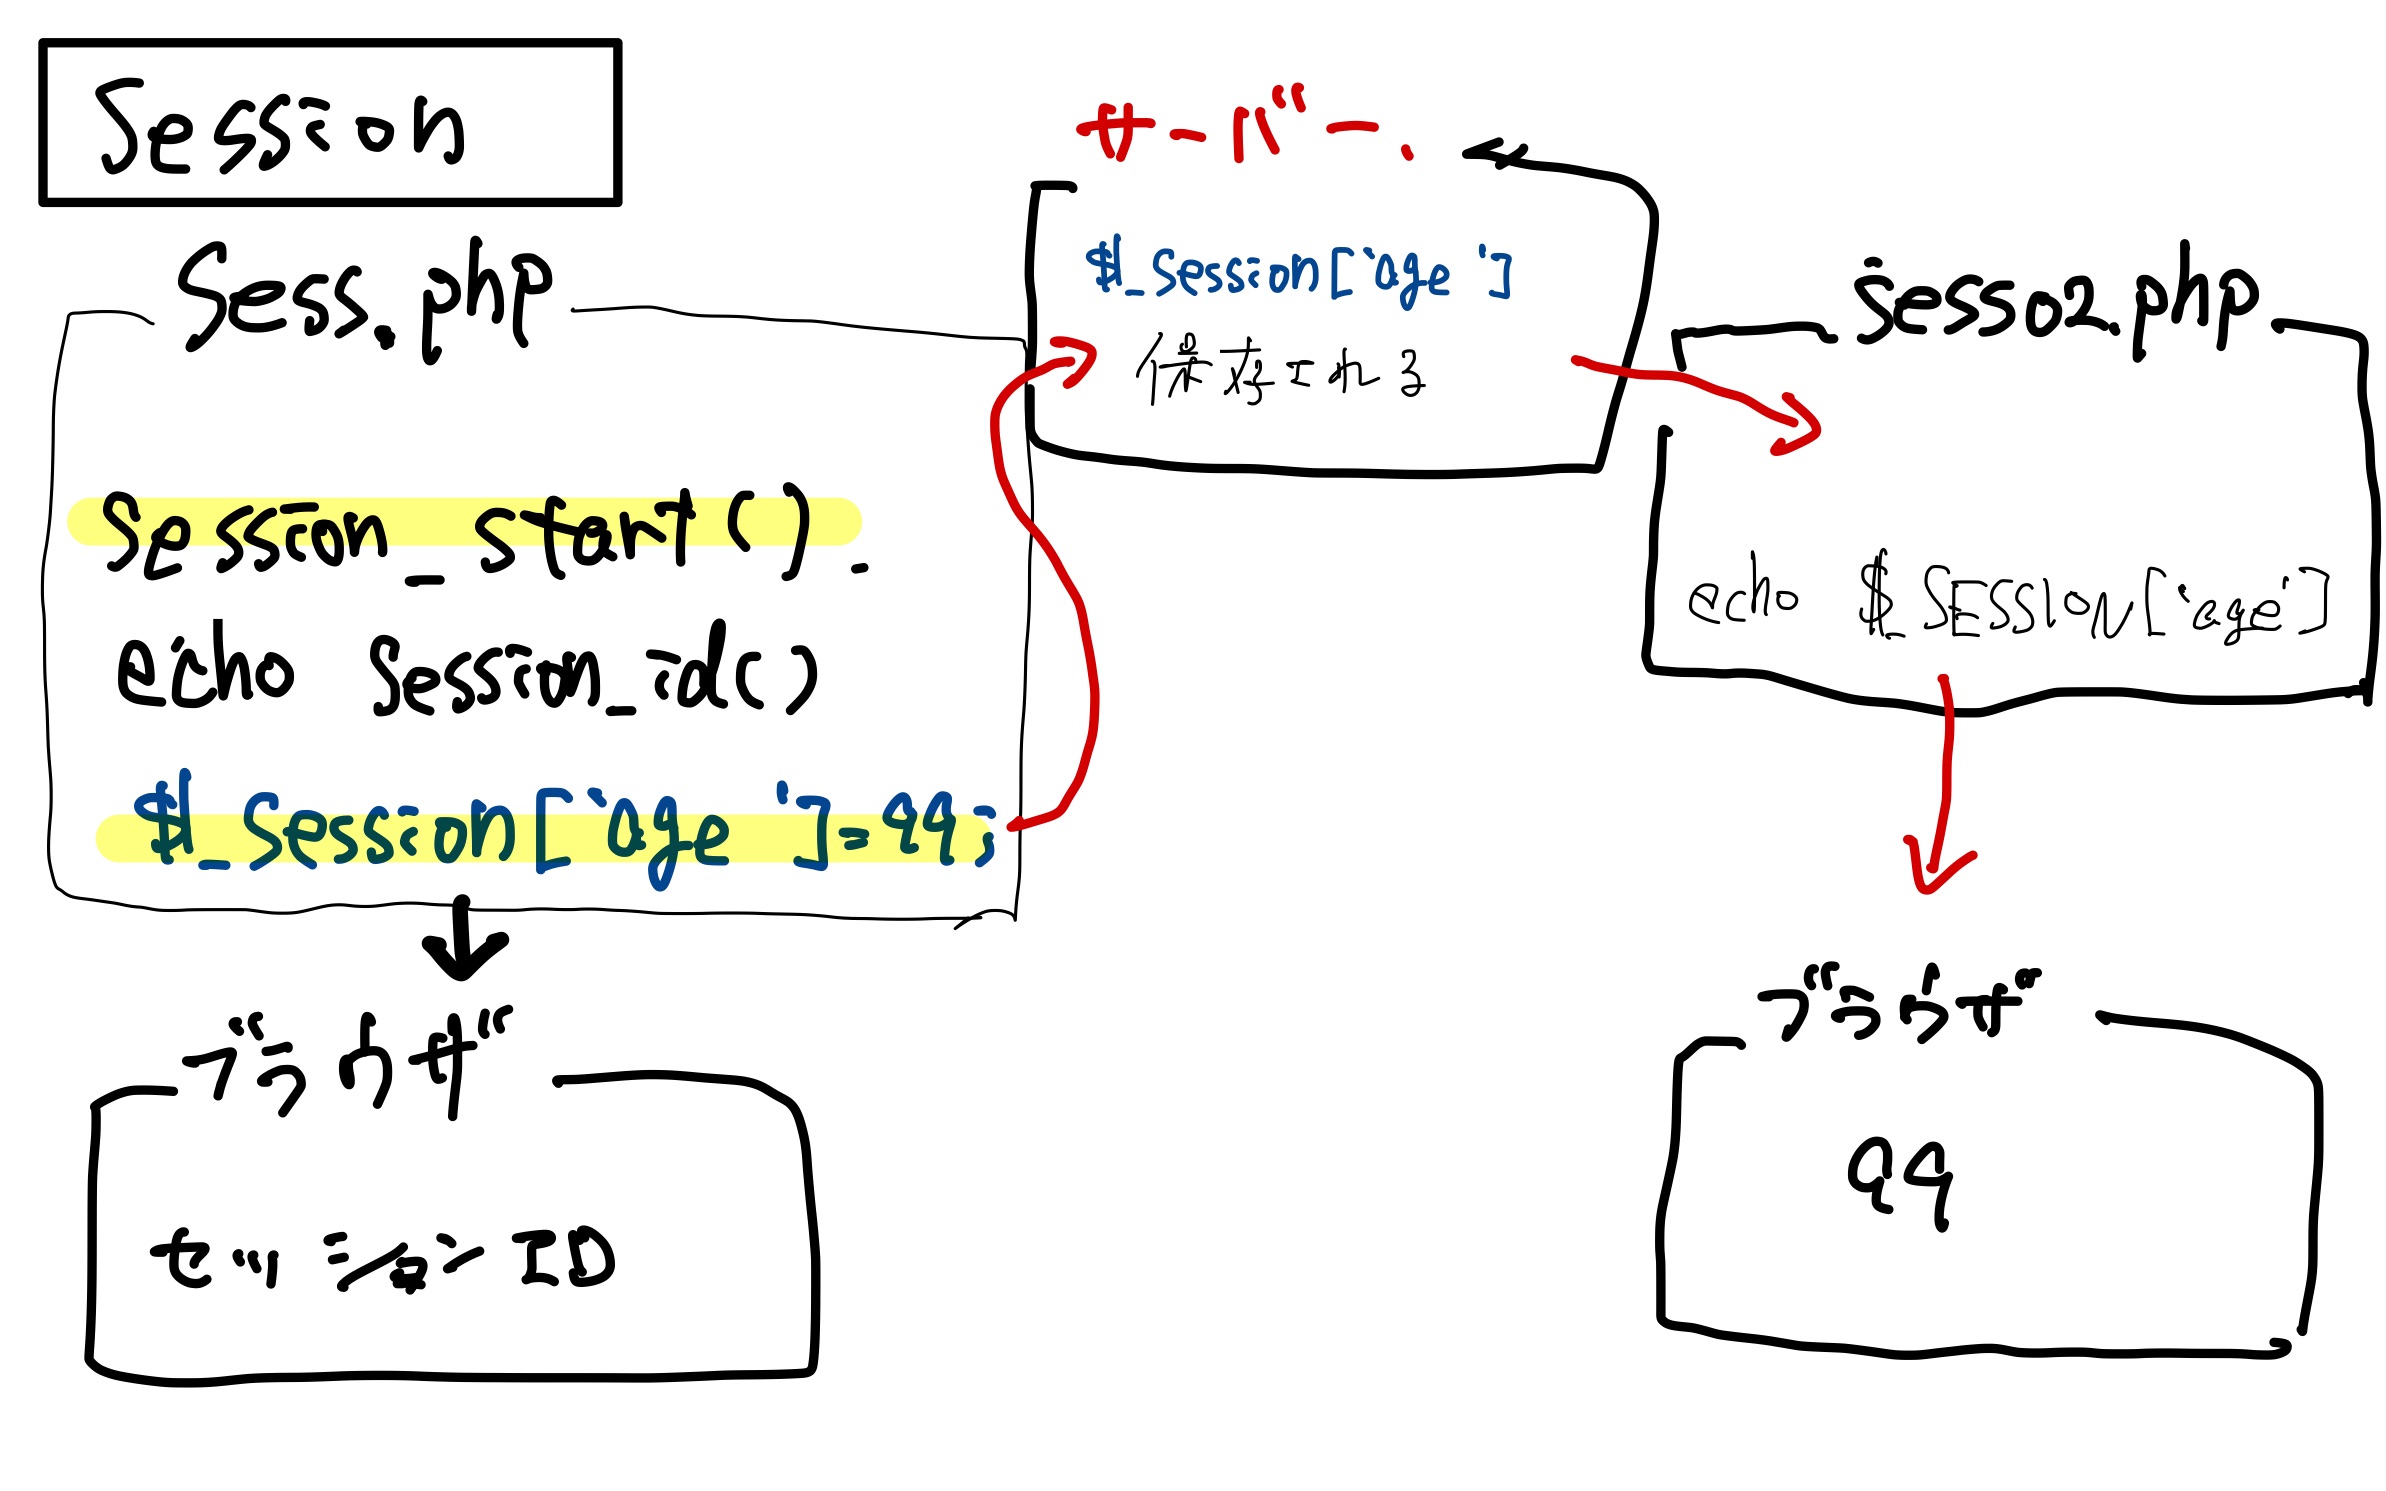 Session
Sess.php
Session_start().
echo Session_id()
$_Session['age']=99;
ブラウザ
セッションID
サーバー.
$_Session['age']
保存される
sesso2.php
echo $_SESSION['age']
ブラウザ
99